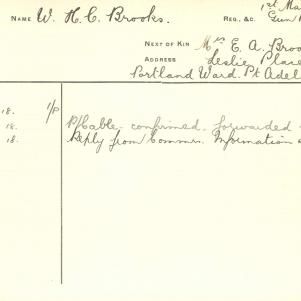 NAME W. H. C. Brooks. REG. &C. 1st Ma
Gun
NEXT OF KIN Mrs E. A. Broo
ADDRESS Leslie Place
Portland Ward. Pt Adel
18. 1/P P/Cable confirmed. forwarded
18. Reply from Commn. Information
18.